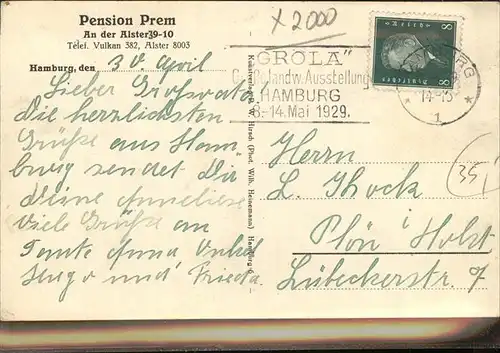 Pension Prem
An der Alster 9-10
Telef. Vulkan 382, Alster 8003
Hamburg, den 30 April
Lieber Großvater
Die herzlichsten
Grüße aus Ham
burg sendet Dir
Deine Anneliese
Viele Grüße an
Tante Anna Onkel
Hugo und Frieda.
x 2000
„GROLA"
Gr. Landw. Ausstellung
HAMBURG
8.-14. Mai 1929.
BURG
14-15
* 1 *
8 8
Deutsches
Herrn
L. Thock
Plön i Holst
Lübeckerstr. 7
35,
W. Hirsch (Phot. Wilh. Heinemann) Hamburg